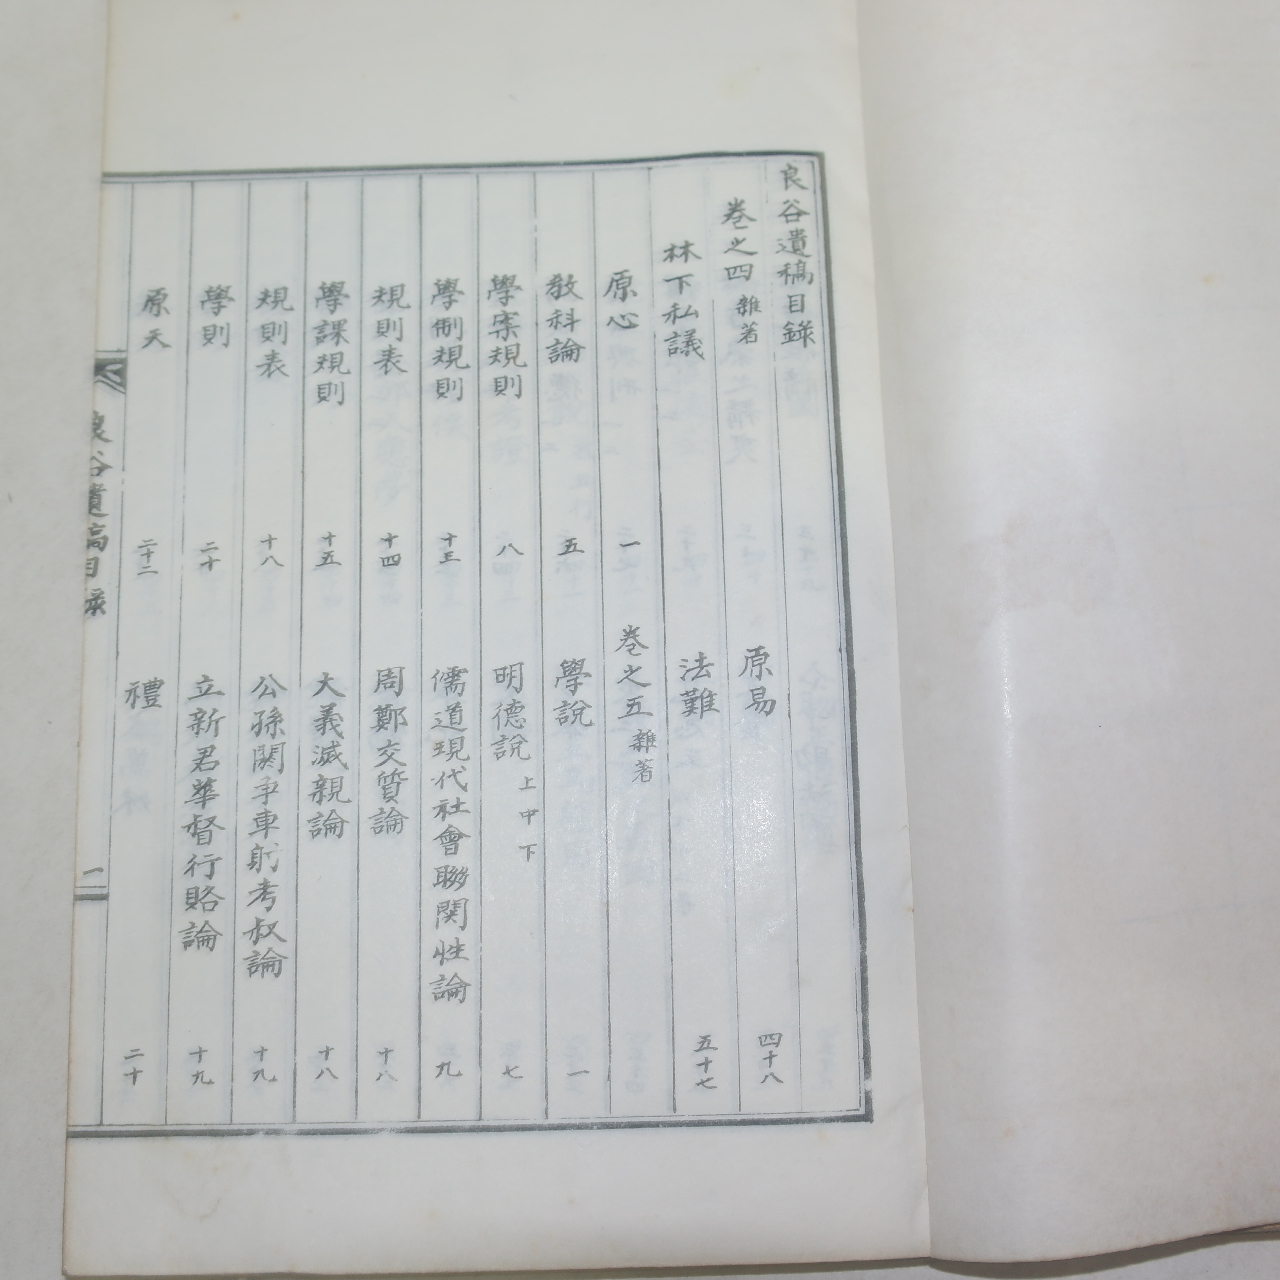 良谷遺稿目錄
卷之四 雜著
林下私議
原心 一
敎科論 五
學案規則 八
學制規則 十三
規則表 十四
學課規則 十五
規則表 十八
學則 二十
原天 二十二
原易 四十八
法難 五十七
卷之五 雜著
學說 一
明德說 上中下 七
儒道現代社會聯関性論 九
周鄭交質論 十八
大義滅親論 十八
公孫閼爭車射考叔論 十九
立新君華督行賂論 十九
禮 二十
良谷遺稿目錄 一